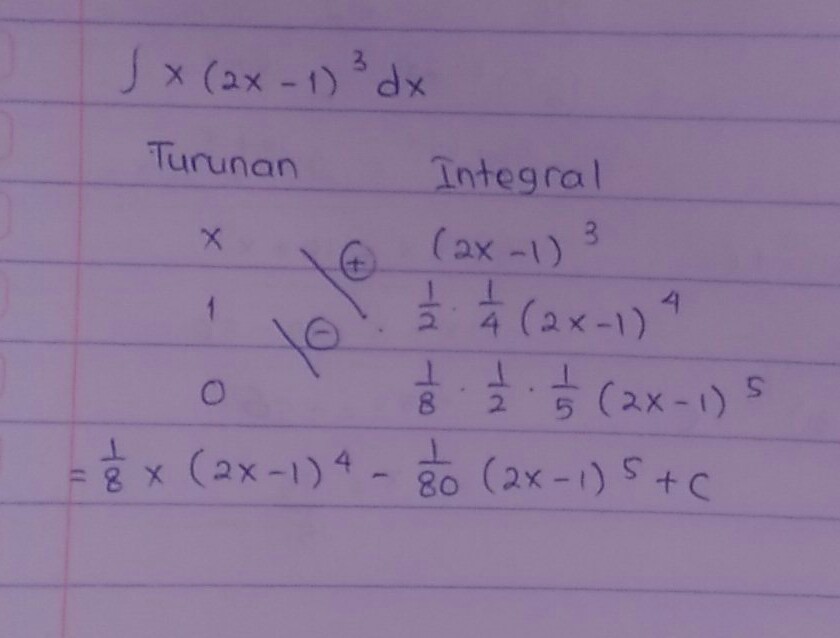 ∫ x (2x - 1)³ dx
Turunan Integral
x ⊕ (2x - 1)³
1 ⊖ . 1/2 · 1/4 (2x - 1)⁴
0 1/8 · 1/2 · 1/5 (2x - 1)⁵
= 1/8 x (2x - 1)⁴ - 1/80 (2x - 1)⁵ + C